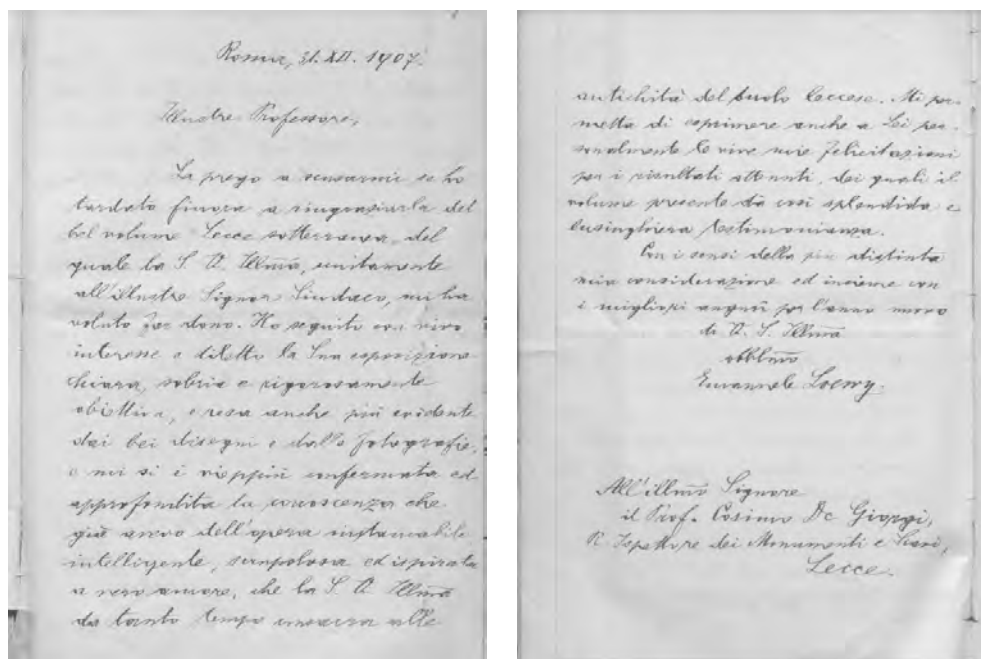 Roma, 31. XII. 1907.
Illustre Professore,
La prego a scusarmi se ho
tardato finora a ringraziarla del
bel volume Lecce sotterranea, del
quale la S. V. Illma, unitamente
all'illustre Signor Sindaco, mi ha
voluto far dono. Ho seguito con vivo
interesse e diletto la Sua esposizione
chiara, sobria e rigorosamente
obiettiva, e resa anche più evidente
dai bei disegni e dalle fotografie,
e mi si è vieppiù confermata ed
approfondita la conoscenza che
già avevo dell'opera instancabile
intelligente, scrupolosa ed ispirata
a vero amore, che la S. V. Illma
da tanto tempo consacra alle
antichità del suolo leccese. Mi per-
metta di esprimere anche a Lei per-
sonalmente le vive mie felicitazioni
per i risultati ottenuti, dei quali il
volume presente dà così splendida e
lusinghiera testimonianza.
Con i sensi della più distinta
mia considerazione ed insieme con
i migliori auguri per l'anno nuovo
di V. S. Illma
obblmo
Emanuele Loewy.
All'illmo Signore
il Prof. Cosimo De Giorgi,
R. Ispettore dei Monumenti e Scavi,
Lecce.